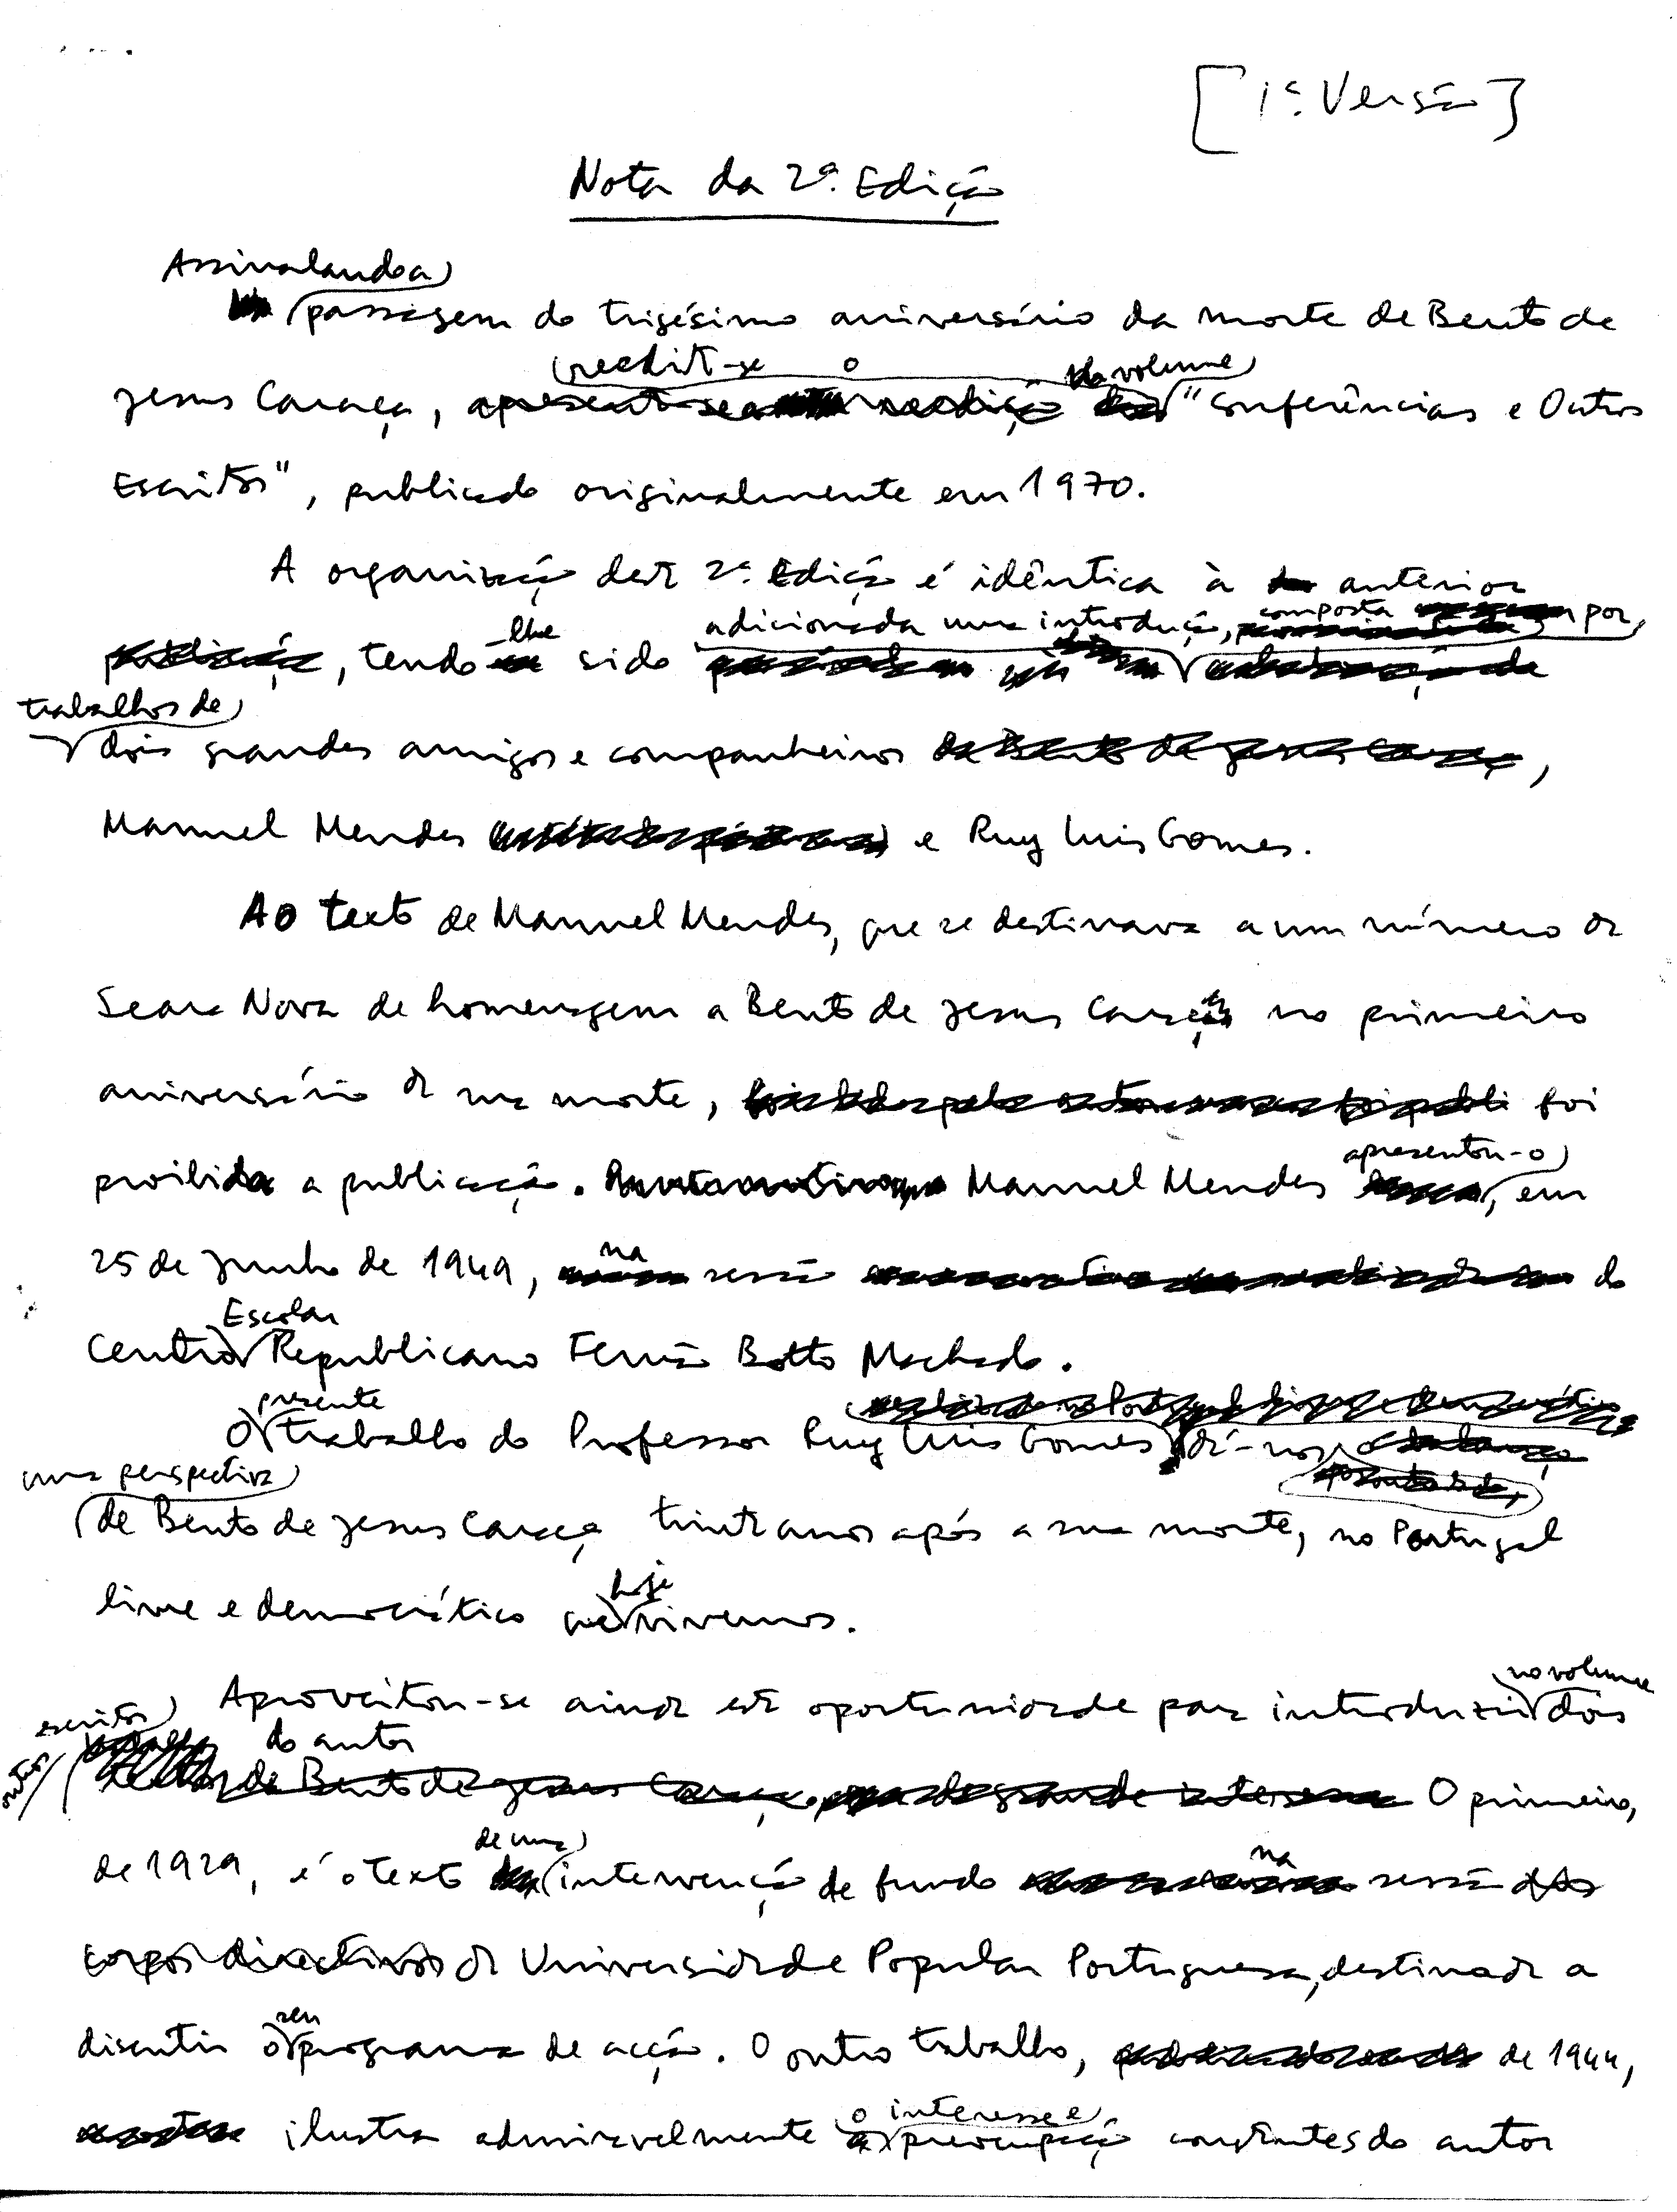 [1ª. Versão]
Nota da 2ª. Edição
Assinalando a
passagem do trigésimo aniversário da morte de Bento de
reedita-se o volume
Jesus Caraça, "Conferências e Outros
Escritos", publicado originalmente em 1970.
A organização desta 2ª. Edição é idêntica à anterior
-lhe adicionada uma introdução, composta por
, tendo sido
trabalhos de
dois grandes amigos e companheiros ,
Manuel Mendes e Ruy Luis Gomes.
Ao texto de Manuel Mendes, que se destinava a um número da
Seara Nova de homenagem a Bento de Jesus Caraça no primeiro
aniversário da sua morte, foi
apresentou-o
proibida a publicação. Manuel Mendes , em
na
25 de Junho de 1949, sessão do
Escolar
Centro Republicano Fernão Botto Machado.
presente
O trabalho do Professor Ruy Luis Gomes dá-nos
uma perspectiva
de Bento de Jesus Caraça trinta anos após a sua morte, no Portugal
hoje
livre e democrático que vivemos.
no volume
Aproveitou-se ainda esta oportunidade para introduzir dois
escritos do autor
outros O primeiro,
de uma na
de 1929, é o texto intervenção de fundo sessão dos
corpos directivos da Universidade Popular Portuguesa, destinada a
seu
discutir o programa de acção. O outro trabalho, de 1944,
o interesse e
ilustra admiravelmente a preocupação constantes do autor